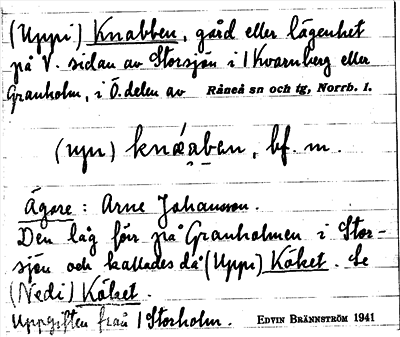 (Uppi) Knabben, gård eller lägenhet
på V. sidan av Storsjön i 1 Kvarnberg eller
Granholm, i Ö. delen av Råneå sn och tg, Norrb. l.
(upı) knáaben, bf. m.
Ägare: Arne Johansson.
Den låg förr på Granholmen i Stor-
sjön och kallades då (Uppi) Köket. Se
(Nedi) Köket.
Uppgiften från 1 Storholm. EDVIN BRÄNNSTRÖM 1941